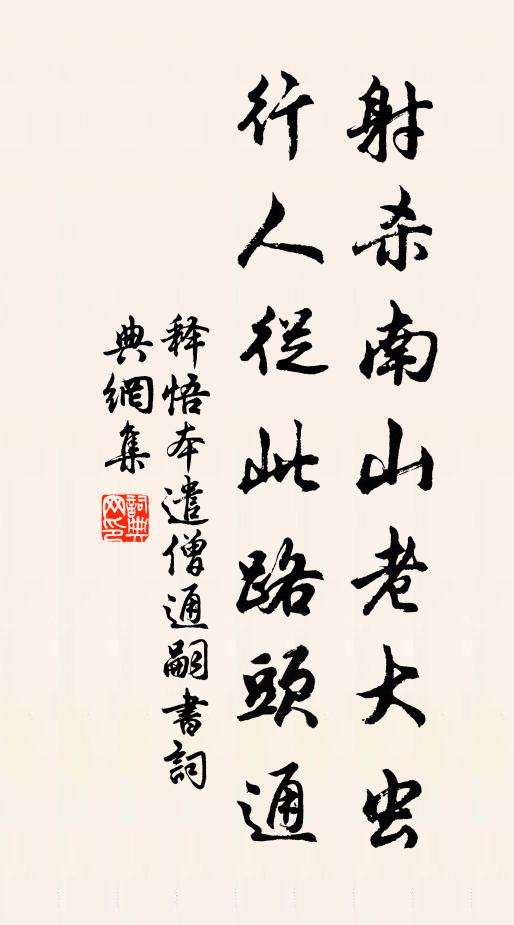 射杀南山老大虫
行人從此路頭通
释悟本遣僧通嗣書詞
典網集
詞典
网印